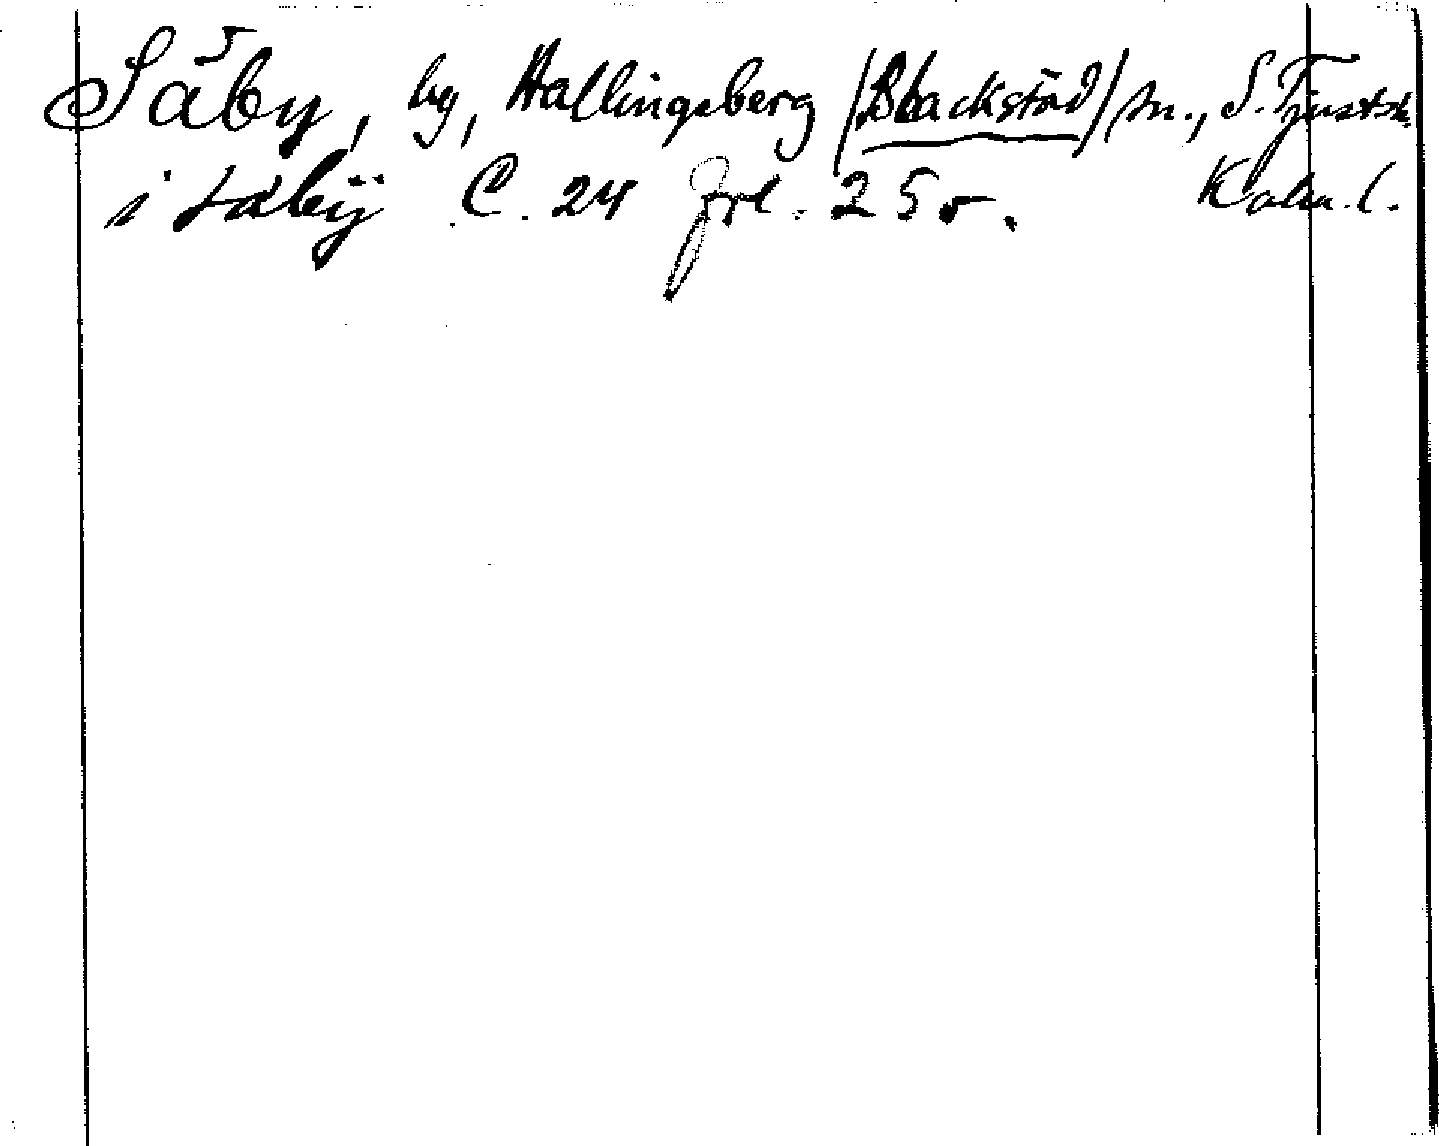 Säby, by, Hallingeberg (Blackstad) sn., S. Tjusts h.
i säbÿ C. 24 frl. 25 v. Kalm. l.